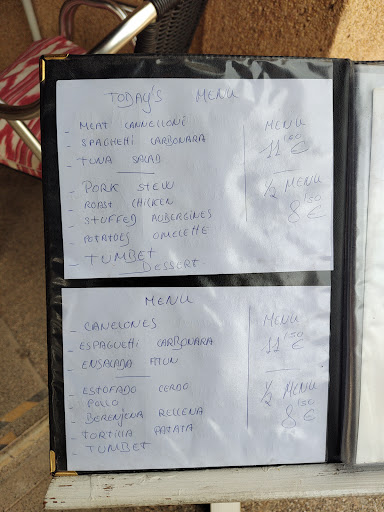 TODAY'S MENU
- MEAT CANNELLONI
- SPAGHETTI CARBONARA
- TUNA SALAD
- PORK STEW
- ROAST CHICKEN
- STUFFED AUBERGINES
- POTATOES OMELETTE
- TUMBET
DESSERT.
MENU
11'50 €
1/2 MENU
8'50 €
MENU
- CANELONES
- ESPAGUETTI CARBONARA
- ENSALADA ATUN
- ESTOFADO CERDO
- POLLO
- BERENJENA RELLENA
- TORTILLA PATATA
- TUMBET
MENU
11'50 €
1/2 MENU
8'50 €